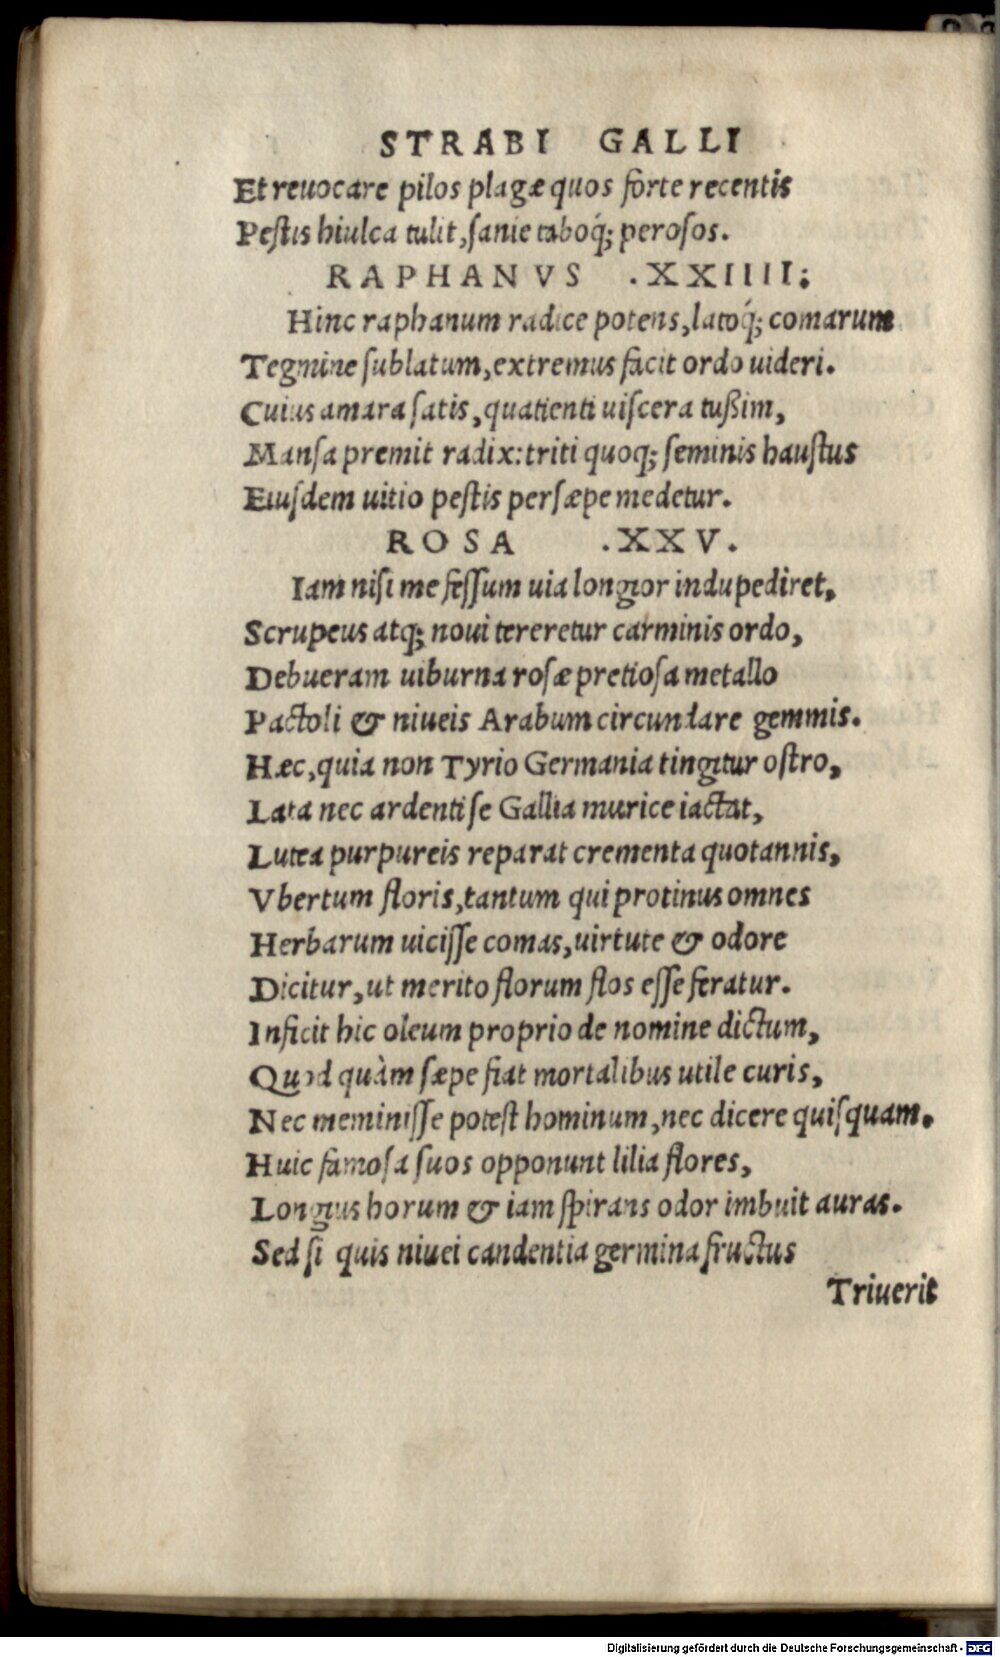 STRABI GALLI
Et reuocare pilos plagæ quos forte recentis
Peſtis hiulca tulit, ſanie taboq́; peroſos.
RAPHANVS .XXIIII;
Hinc raphanum radice potens, latoq́; comarum
Tegmine ſublatum, extremus facit ordo uideri.
Cuius amara ſatis, quatienti uiſcera tußim,
Manſa premit radix: triti quoq; ſeminis hauſtus
Eiuſdem uitio peſtis perſæpe medetur.
ROSA .XXV.
Iam niſi me feſſum uia longior indupediret,
Scrupeus atq; noui tereretur carminis ordo,
Debueram uiburna roſæ pretioſa metallo
Pactoli & niueis Arabum circundare gemmis.
Hæc, quia non Tyrio Germania tingitur oſtro,
Lata nec ardenti ſe Gallia murice iactat,
Lutea purpureis reparat crementa quotannis,
Vbertum floris, tantum qui protinus omnes
Herbarum uiciſſe comas, uirtute & odore
Dicitur, ut merito florum flos eſſe feratur.
Inficit hic oleum proprio de nomine dictum,
Quod quàm ſæpe fiat mortalibus utile curis,
Nec meminiſſe poteſt hominum, nec dicere quiſquam.
Huic famoſa ſuos opponunt lilia flores,
Longius horum & iam ſpirans odor imbuit auras.
Sed ſi quis niuei candentia germina fructus
Triuerit
Digitalisierung gefördert durch die Deutsche Forschungsgemeinschaft - DFG